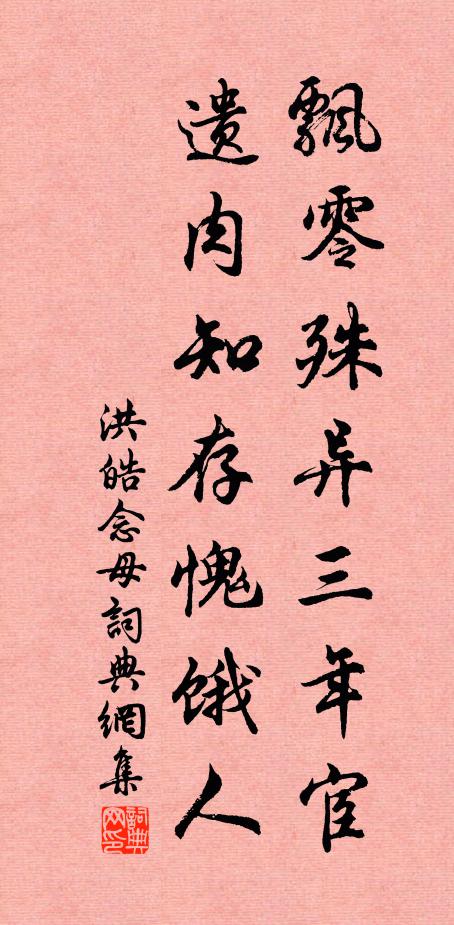 飄零殊异三年宦
遗肉知存愧饿人
洪皓念母詞典網集
詞典网印